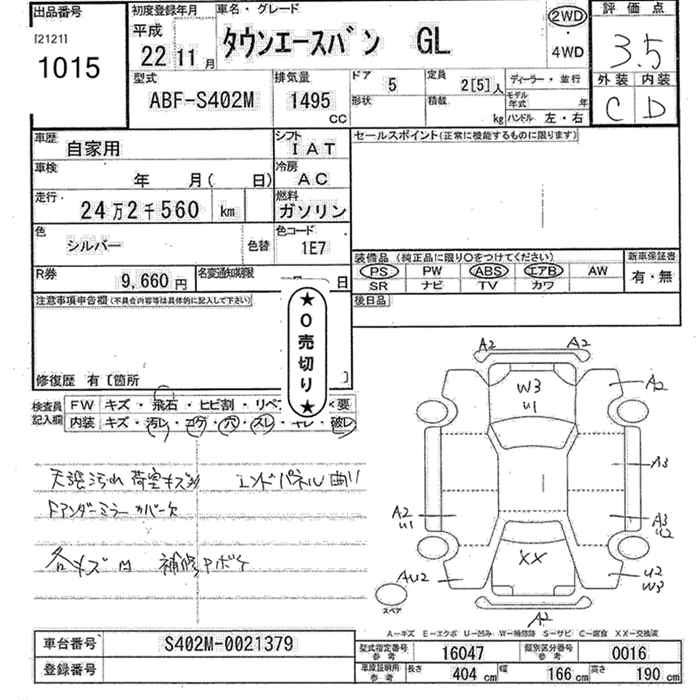 出品番号
[2121]
1015
初度登録年月
平成
22 11 月
車名・グレード
タウンエースバン GL
2WD
・
4WD
評価点
3.5
外装 内装
C D
型式
ABF-S402M
排気量
1495
cc
ドア 5
形状
定員 2[5]人
積載 kg
ディーラー・並行
モデル年式 年
ハンドル 左・右
車歴
自家用
シフト
IAT
車検
年 月( 日)
冷房
AC
走行
24万2千560 km
燃料
ガソリン
色
シルバー
色替
色コード
1E7
R券
9,660 円
名変通知期限
日
セールスポイント(正常に機能するものに限ります)
装備品 (純正品に限り○をつけてください)
PS PW ABS エアB AW
SR ナビ TV カワ
新車保証書
有・無
後日品
注意事項申告欄(不具合内容等は具体的に記入して下さい)
★0売切り★
修復歴 有〔箇所 〕
検査員記入欄
FW キズ・飛石・ヒビ割・リペ ×要
内装 キズ・汚レ・コゲ・穴・スレ・ 破レ
天張汚れ 荷室キズ エンドパネル曲り
Fアンダーミラーカバー欠
各キズ凹 補修アボケ
A2 A2
W3
U1
A2
A3
A2
U1
A3
U2
XX
AU2
U2
W3
A2
スペア
A-キズ E-エクボ U-凹み W-補修跡 S-サビ C-腐食 XX-交換済
車台番号
S402M-0021379
登録番号
型式指定番号
参考
16047
類別区分番号
参考
0016
車庫証明用
参考
長さ 404 cm
幅 166 cm
高さ 190 cm